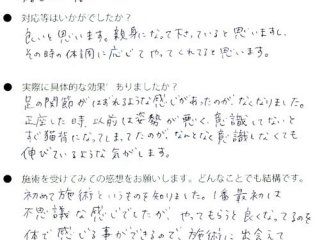 ● 対応等はいかがでしたか？
良いと思います。親身になって下さっていると思いますし、
その時の体調に応じてやってくれてると思う。
● 実際に具体的な効果 ありましたか？
足の関節がはずれるような感じがあったのが、なくなりました。
正座した時、以前は姿勢が悪く、意識してないと
すぐ猫背になってしまってたのが、なんとなく意識しなくても
伸びているような気がします。
● 施術を受けてみての感想をお願いします。どんなことでも結構です。
初めて施術というものを知りました。1番最初は
不思議な感じでしたが、やってもらうと良くなってるのを
体で感じる事ができるので、施術に出会えて